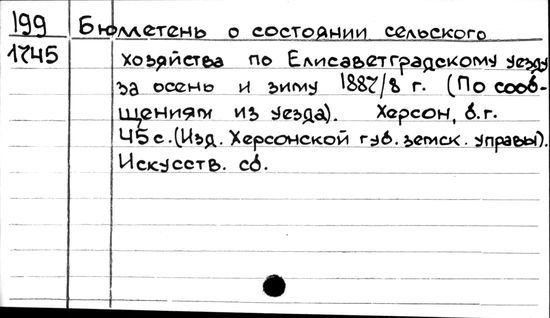 199 Бюллетень о состоянии сельского
1745 хозяйства по Елисаветградскому уезду
за осень и зиму 1887/8 г. (По сооб-
щениям из уезда). Херсон, б.г.
45 с. (Изд. Херсонской губ. земск. управы).
Искусств. сб.